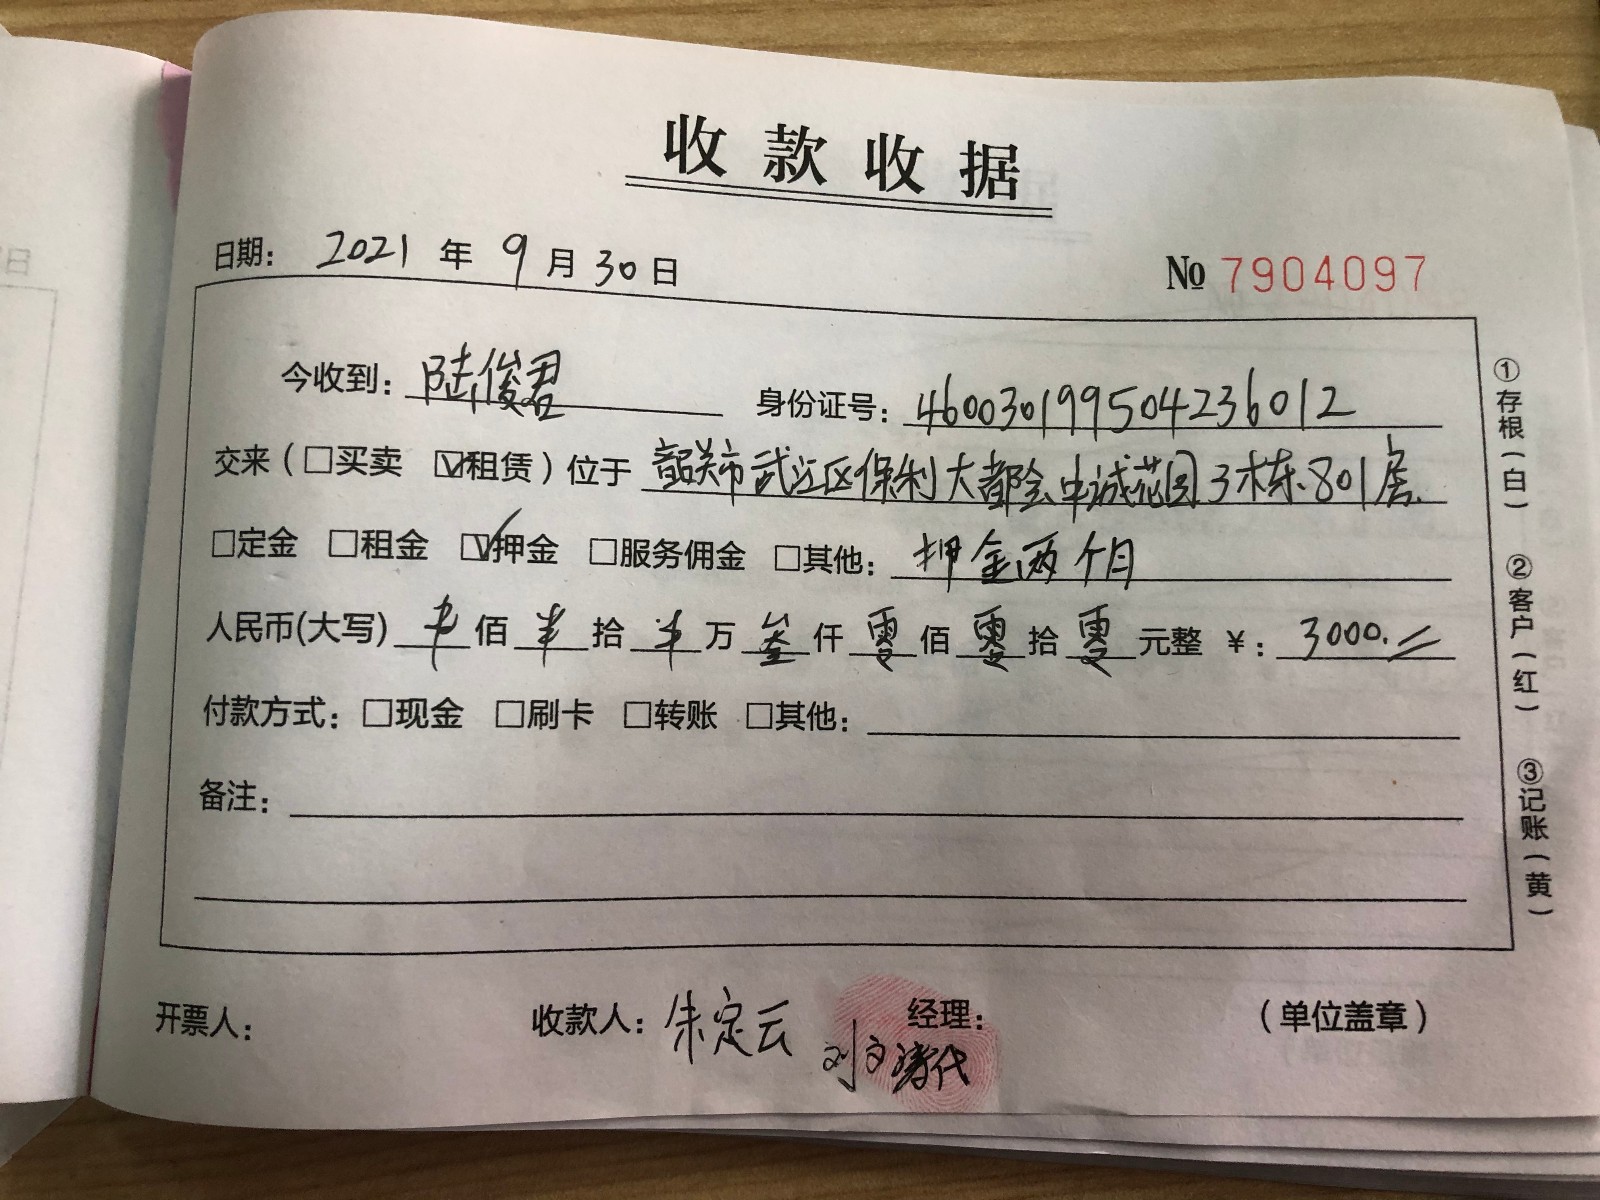 收款收据
日期： 2021 年 9 月 30 日 № 7904097
今收到：陆俊君 身份证号：460030199504236012
交来（□买卖 ☑租赁）位于 韶关市武江区保利大都会中诚花园3栋801房
□定金 □租金 ☑押金 □服务佣金 □其他：押金两个月
人民币(大写) 佰 拾 万 叁 仟 零 佰 零 拾 零 元整 ¥：3000.
付款方式：□现金 □刷卡 □转账 □其他：
备注：
开票人： 收款人：朱定云 经理： （单位盖章）
刘文涛代
①存根（白） ②客户（红） ③记账（黄）